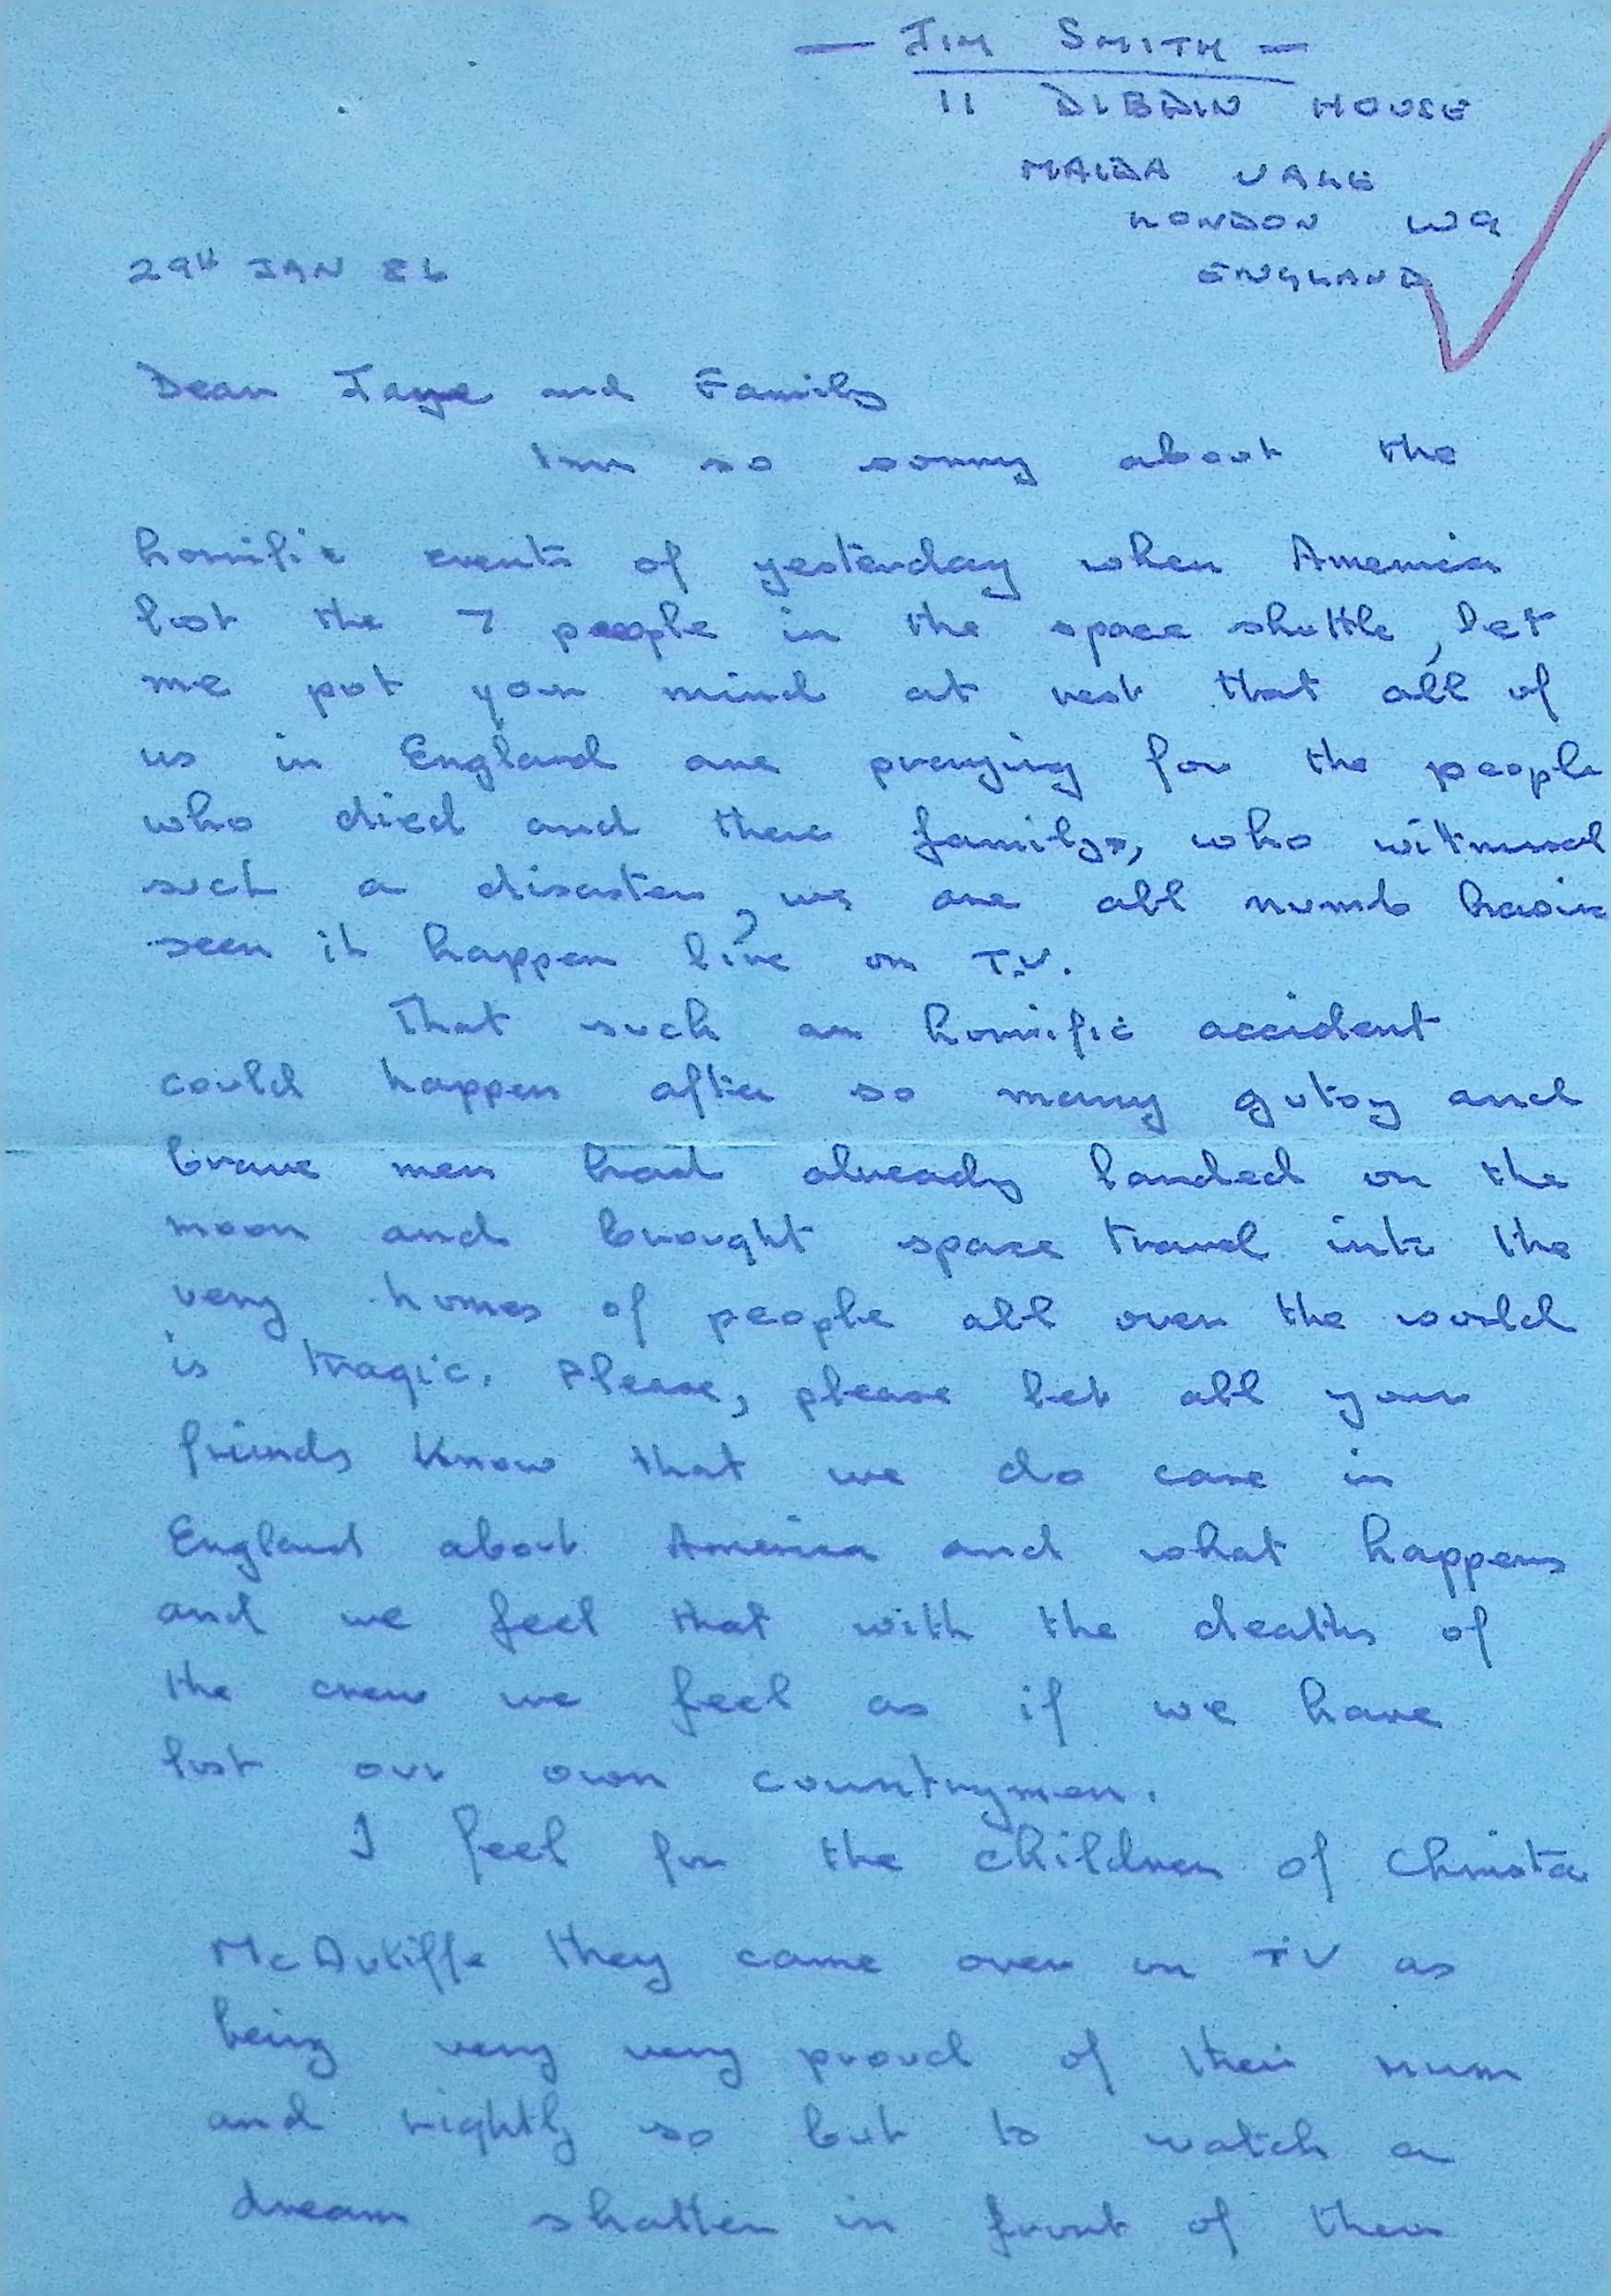 — JIM SMITH —
11 DIBDIN HOUSE
MAIDA VALE
LONDON W9
ENGLAND
29th JAN 86
Dear Jaye and Family
Im so sorry about the
horrific events of yesterday when America
lost the 7 people in the space shuttle, let
me put your mind at rest that all of
us in England are praying for the people
who died and there familys, who witnessed
such a disaster, we are all numb havin
seen it happen live on T.V.
That such an horrific accident
could happen after so many gutsy and
brave men had already landed on the
moon and brought space travel into the
very homes of people all over the world
is tragic. Please, please let all your
friends know that we do care in
England about America and what happens
and we feel that with the deaths of
the crew we feel as if we have
lost our own countrymen.
I feel for the children of Christa
McAuliffe they came over on TV as
being very very proud of their mum
and rightly so but to watch a
dream shatter in front of them